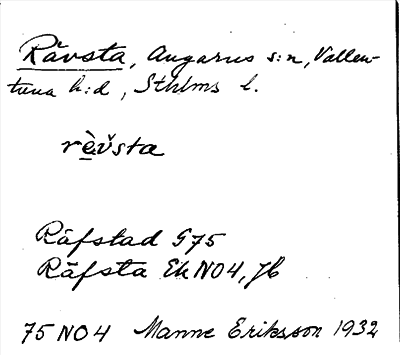 Rävsta, Angarns s:n, Vallen-
tuna h:d, Sthlms l.
rὲv̌sta
Räfstad G75
Räfsta Ek NO4, Jb
75 NO4 Manne Eriksson 1932